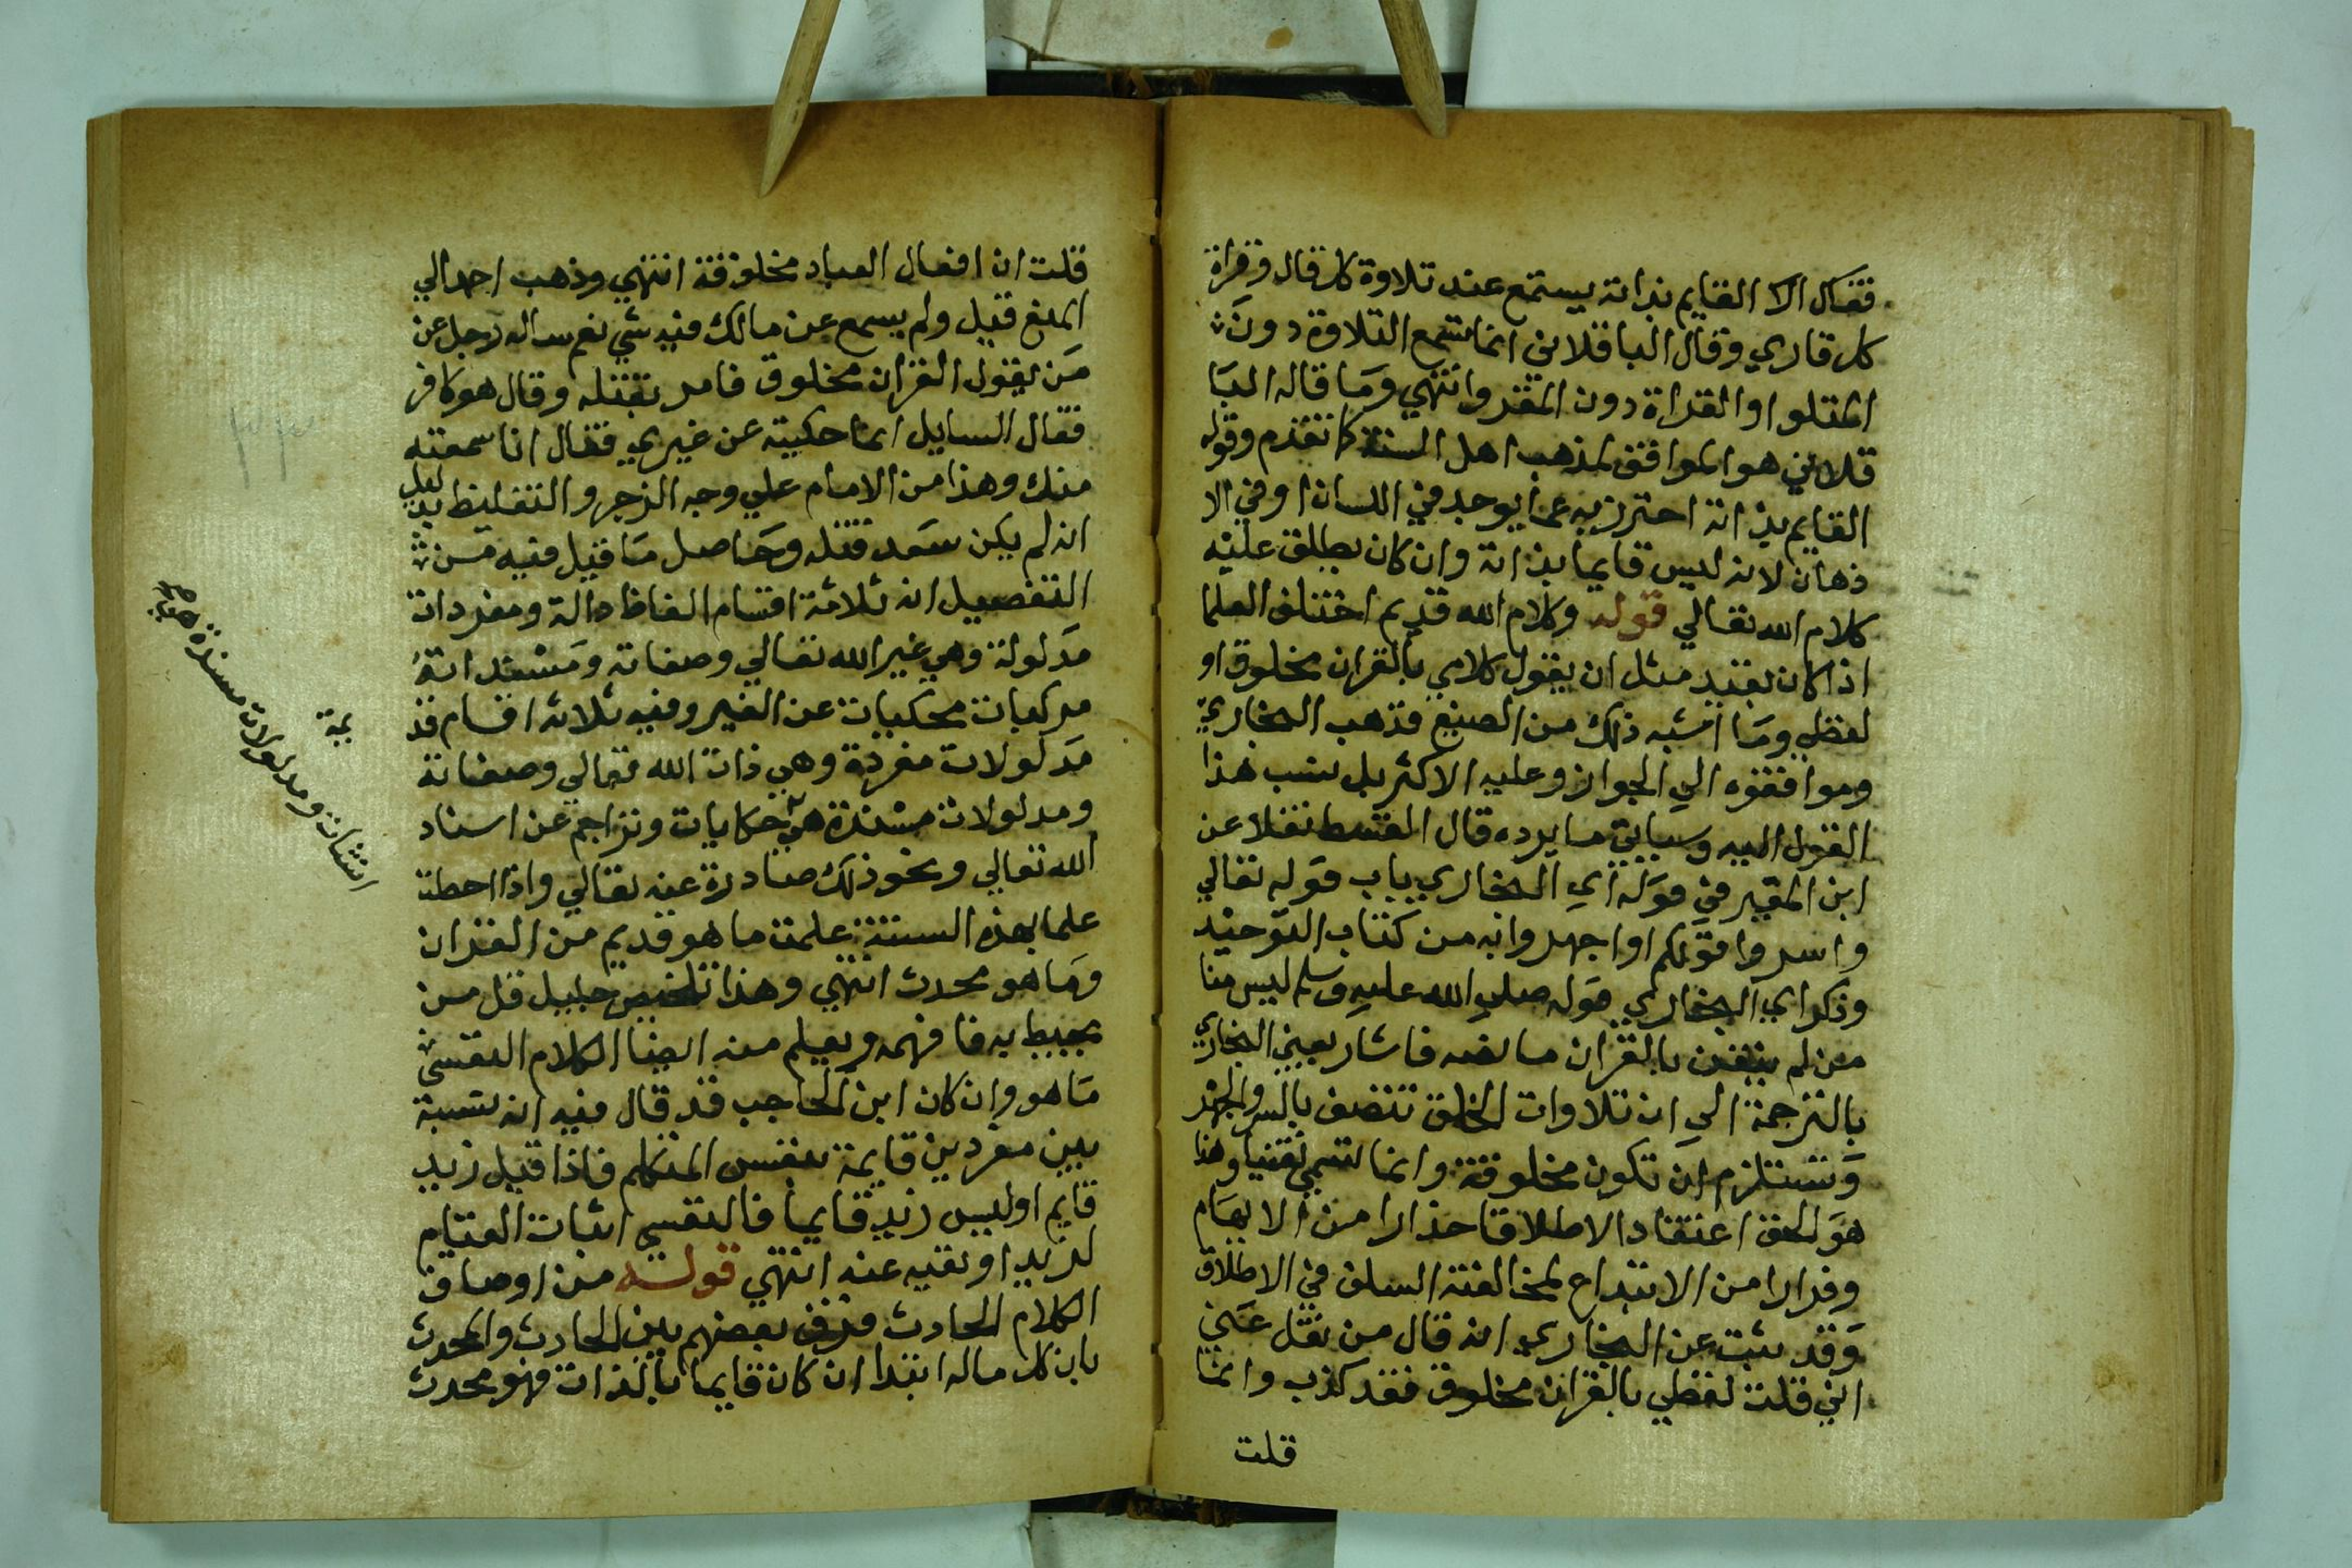 فقال الا القايم بذاته يستمع عند تلاوة كل قال وقراة
كل قاري وقال الباقلاني انما نسمع التلاوة دون
المتلو او القراة دون المقرو انتهي وما قاله البا
قلاني هو الموافق لمذهب اهل السنة كما تقدم وقوله
القايم بذاته احترز به عما يوجد في اللسان او في الا
ذهان لانه ليس قايما بذاته وان كان يطلق عليه
كلام الله تعالي قوله وكلام الله قديم اختلف العلما
اذا كان بقيد مثل ان يقول كلامي بالقران مخلوق او
لفظي وما اشبه ذلك من الصيغ فذهب البخاري
وموافقوه الي الجواز وعليه الاكثر بل نسب هذا
القول اليه وسياتي ما يرده قال القسط نقلا عن
ابن المنير في قوله اي البخاري باب قوله تعالي
واسروا قولكم او اجهروا به من كتاب التوحيد
وذكر اي البخاري قوله صلي الله عليه وسلم ليس منا
من لم يتغن بالقران ما نصه فاشار يعني البخاري
بالترجمة الي ان تلاوات الخلق تتصف بالسر والجهر
وتستلزم ان تكون مخلوقة وانما تسمي تغنيا وهذا
هو الحق اعتقادا لا اطلاقا حذارا من الايهام
وفرارا من الابتداع لمخالفة السلف في الاطلاق
وقد ثبت عن البخاري انه قال من نقل عني
اني قلت لفظي بالقران مخلوق فقد كذب وانما
قلت
قلت ان افعال العباد مخلوقة انتهي وذهب احمد الي
المنع قيل ولم يسمع عن مالك فيه شي نعم ساله رجل عن
من يقول القران مخلوق فامر بقتله وقال هو كافر
فقال السايل انما حكيته عن غيري فقال انا سمعته
منك وهذا من الامام علي وجه الزجر والتغليظ بدليل
انه لم يكن بعد قتله وحاصل ما قيل فيه من
التفصيل انه ثلاثة اقسام الفاظ دالة ومفردات
مدلولة وهي غير الله تعالي وصفاته ومسندات
مركبات محكيات عن الغير وفيه ثلاثة اقسام قد
مدلولات مفردة وهي ذات الله تعالي وصفاته
ومدلولات مسندة هي حكايات وتراجم عن اسناد
الله تعالي ونحو ذلك صادرة عنه تعالي واذا احطت
علما بهذه الستة علمت ما هو قديم من القران
وما هو محدث انتهي وهذا تلخيص جليل قل من
يحيط به فافهمه ويعلم منه ايضا الكلام النفسي
ما هو وان كان ابن الحاجب قد قال فيه انه نسبة
بين مفردين قايمة بنفس المتكلم فاذا قيل زيد
قايم او ليس زيد قايما فالنفسي اثبات القيام
لزيد او نفيه عنه انتهي قوله من اوصاف
الكلام الحادث فرق بعضهم بين الحادث والمحدث
بان كل ماله ابتدا ان كان قايما بالذات فهو محدث
انشات ومدلولات مسندة هي